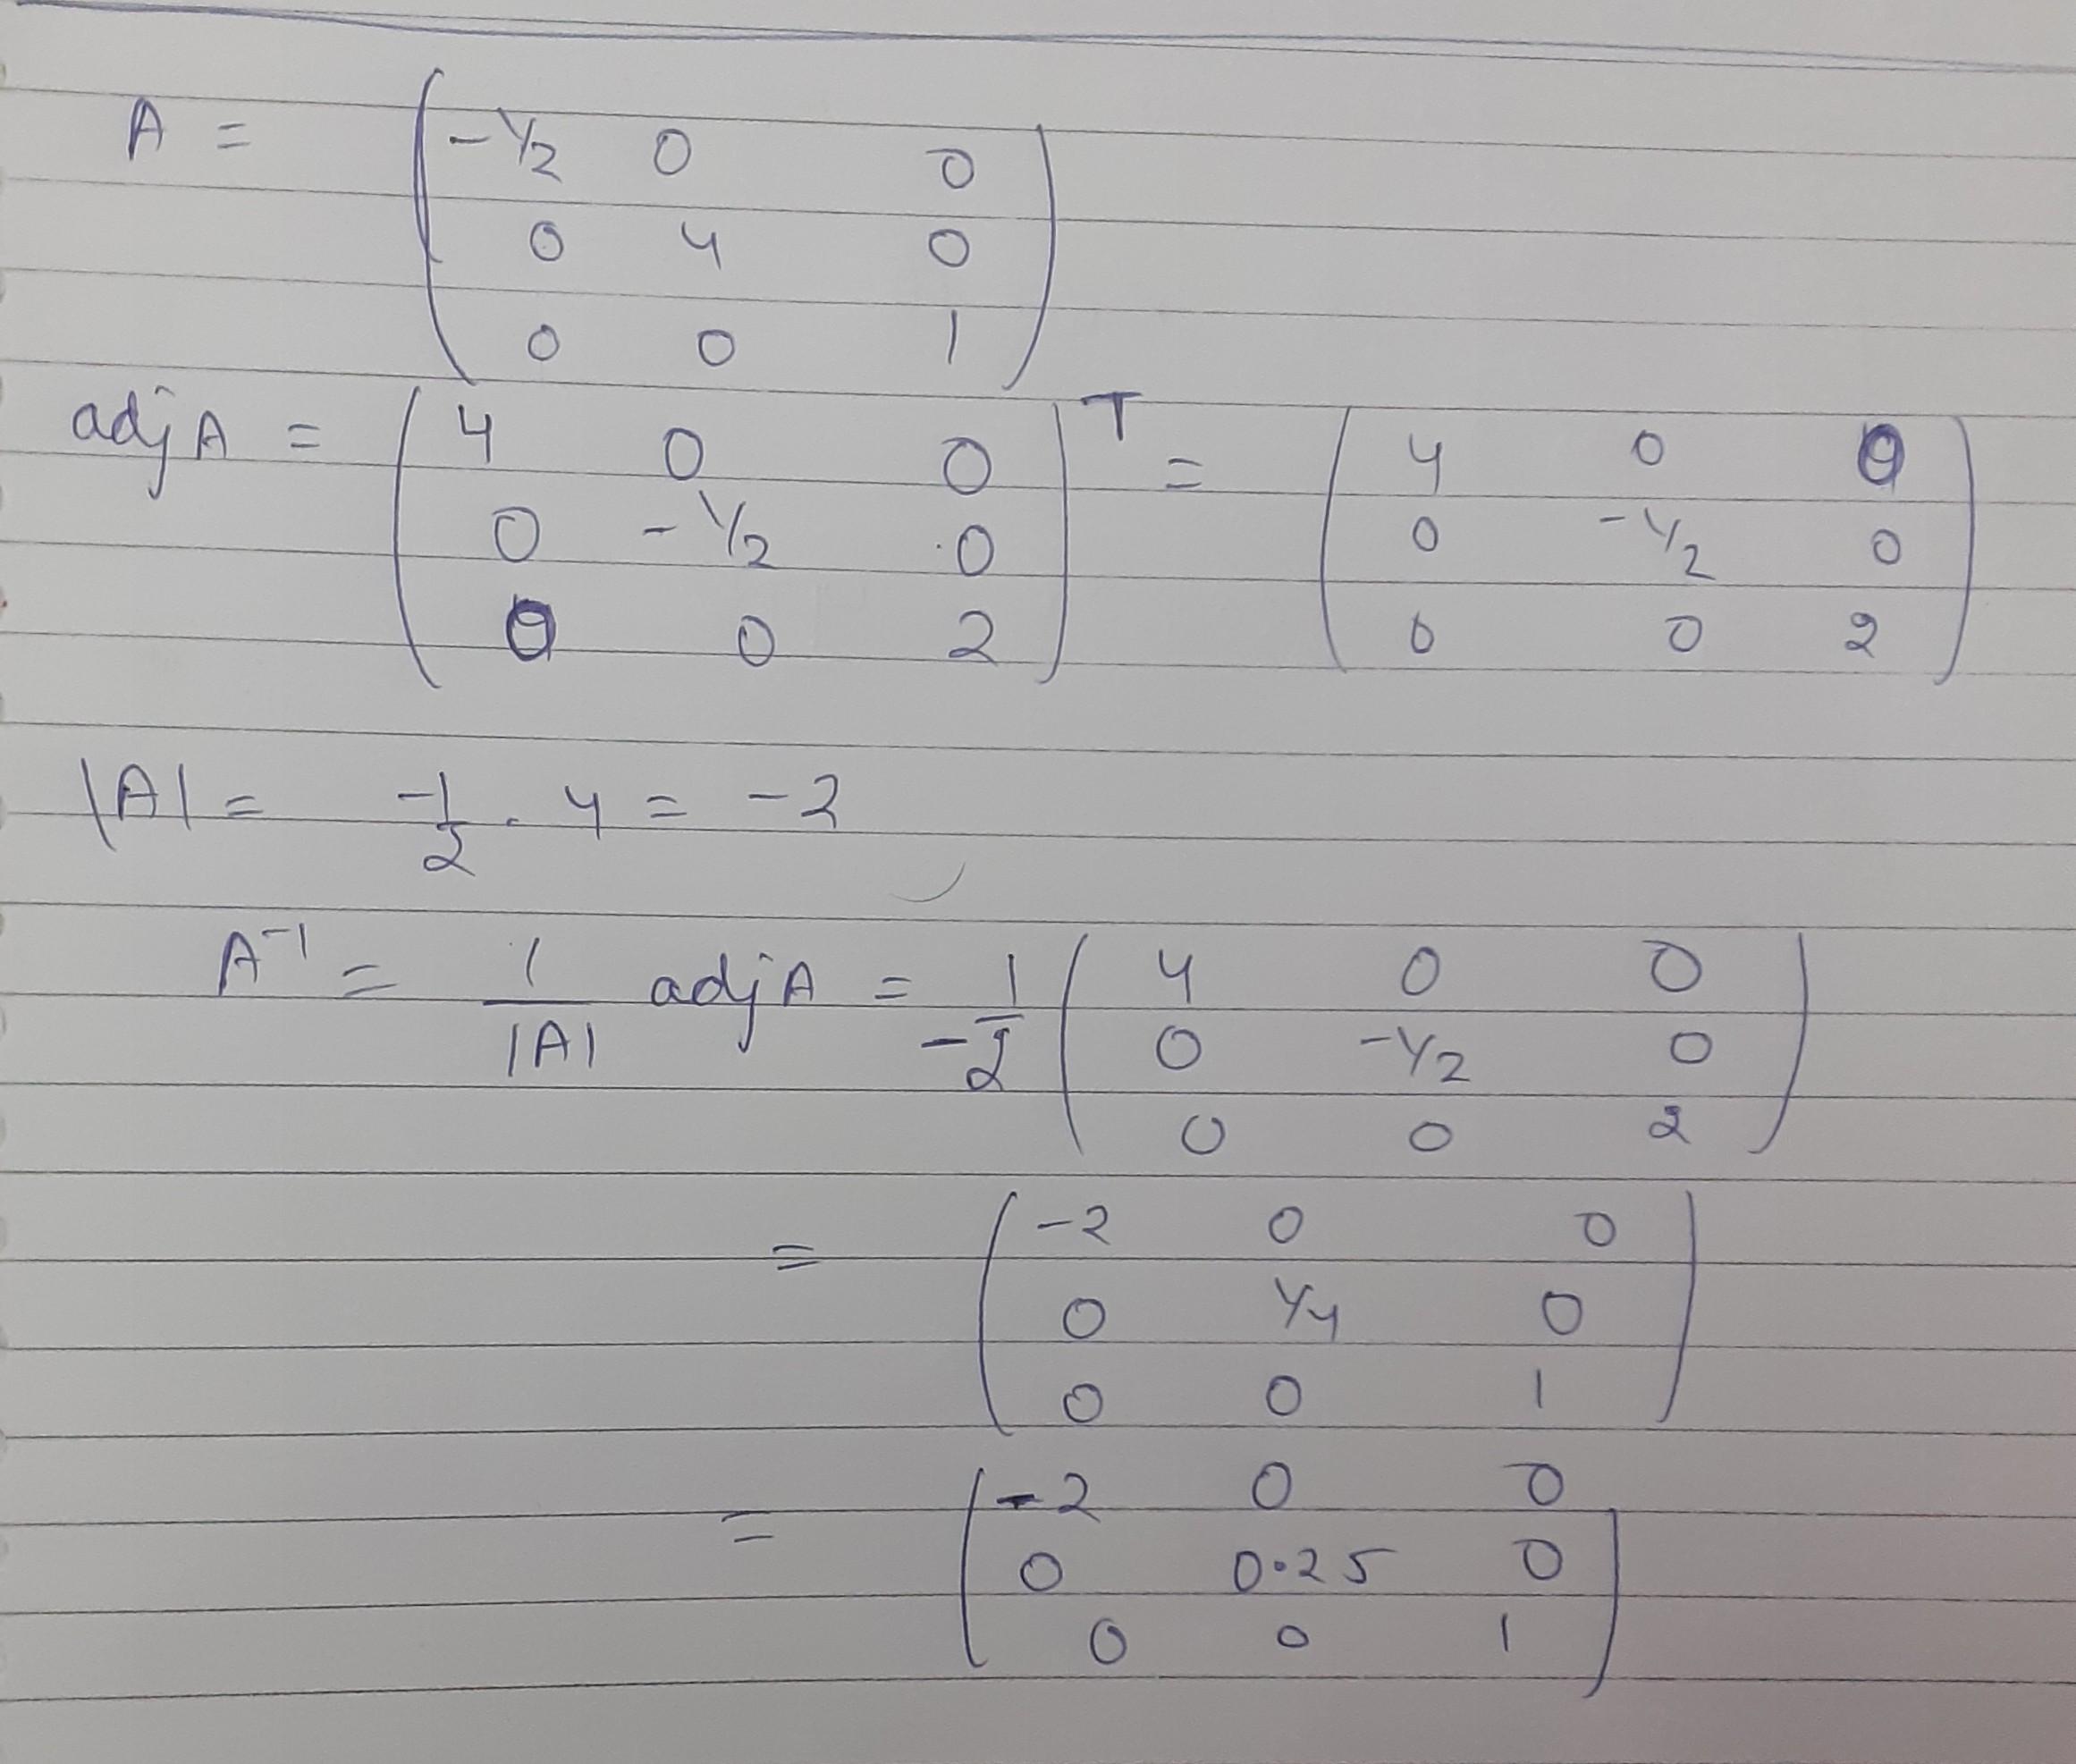 A = ( -1/2 0 0
0 4 0
0 0 1 )
adj A = ( 4 0 0 )T = ( 4 0 0
0 -1/2 0 0 -1/2 0
0 0 2 0 0 2 )
|A| = -1/2 . 4 = -2
A-1 = 1/|A| adj A = 1/-2 ( 4 0 0
0 -1/2 0
0 0 2 )
= ( -2 0 0
0 1/4 0
0 0 1 )
= ( -2 0 0
0 0.25 0
0 0 1 )